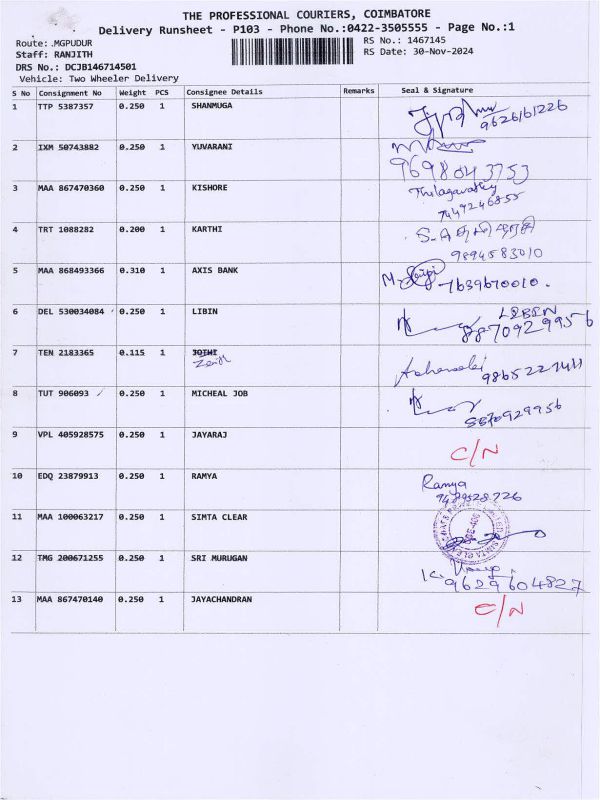 THE PROFESSIONAL COURIERS, COIMBATORE
Delivery Runsheet - P103 - Phone No.:0422-3505555 - Page No.:1
Route: .MGPUDUR
RS No.: 1467145
Staff: RANJITH
RS Date: 30-Nov-2024
DRS No.: DCJB146714501
Vehicle: Two Wheeler Delivery
S No Consignment No Weight PCS Consignee Details Remarks Seal & Signature
1 TTP 5387357 0.250 1 SHANMUGA
9626161226
2 IXM 50743882 0.250 1 YUVARANI
9698043753
3 MAA 867470360 0.250 1 KISHORE Thilagavathy
7449246855
4 TRT 1088282 0.200 1 KARTHI
9894583010
5 MAA 868493366 0.310 1 AXIS BANK 7639670010.
6 DEL 530034084 0.250 1 LIBIN LIBIN
8870929956
7 TEN 2183365 0.115 1 JOTHI
9865227411
8 TUT 906093 0.250 1 MICHEAL JOB
8870929956
9 VPL 405928575 0.250 1 JAYARAJ
C/N
10 EDQ 23879913 0.250 1 RAMYA Ramya
9489528726
11 MAA 100063217 0.250 1 SIMTA CLEAR
12 TMG 200671255 0.250 1 SRI MURUGAN
9629604827
13 MAA 867470140 0.250 1 JAYACHANDRAN C/N